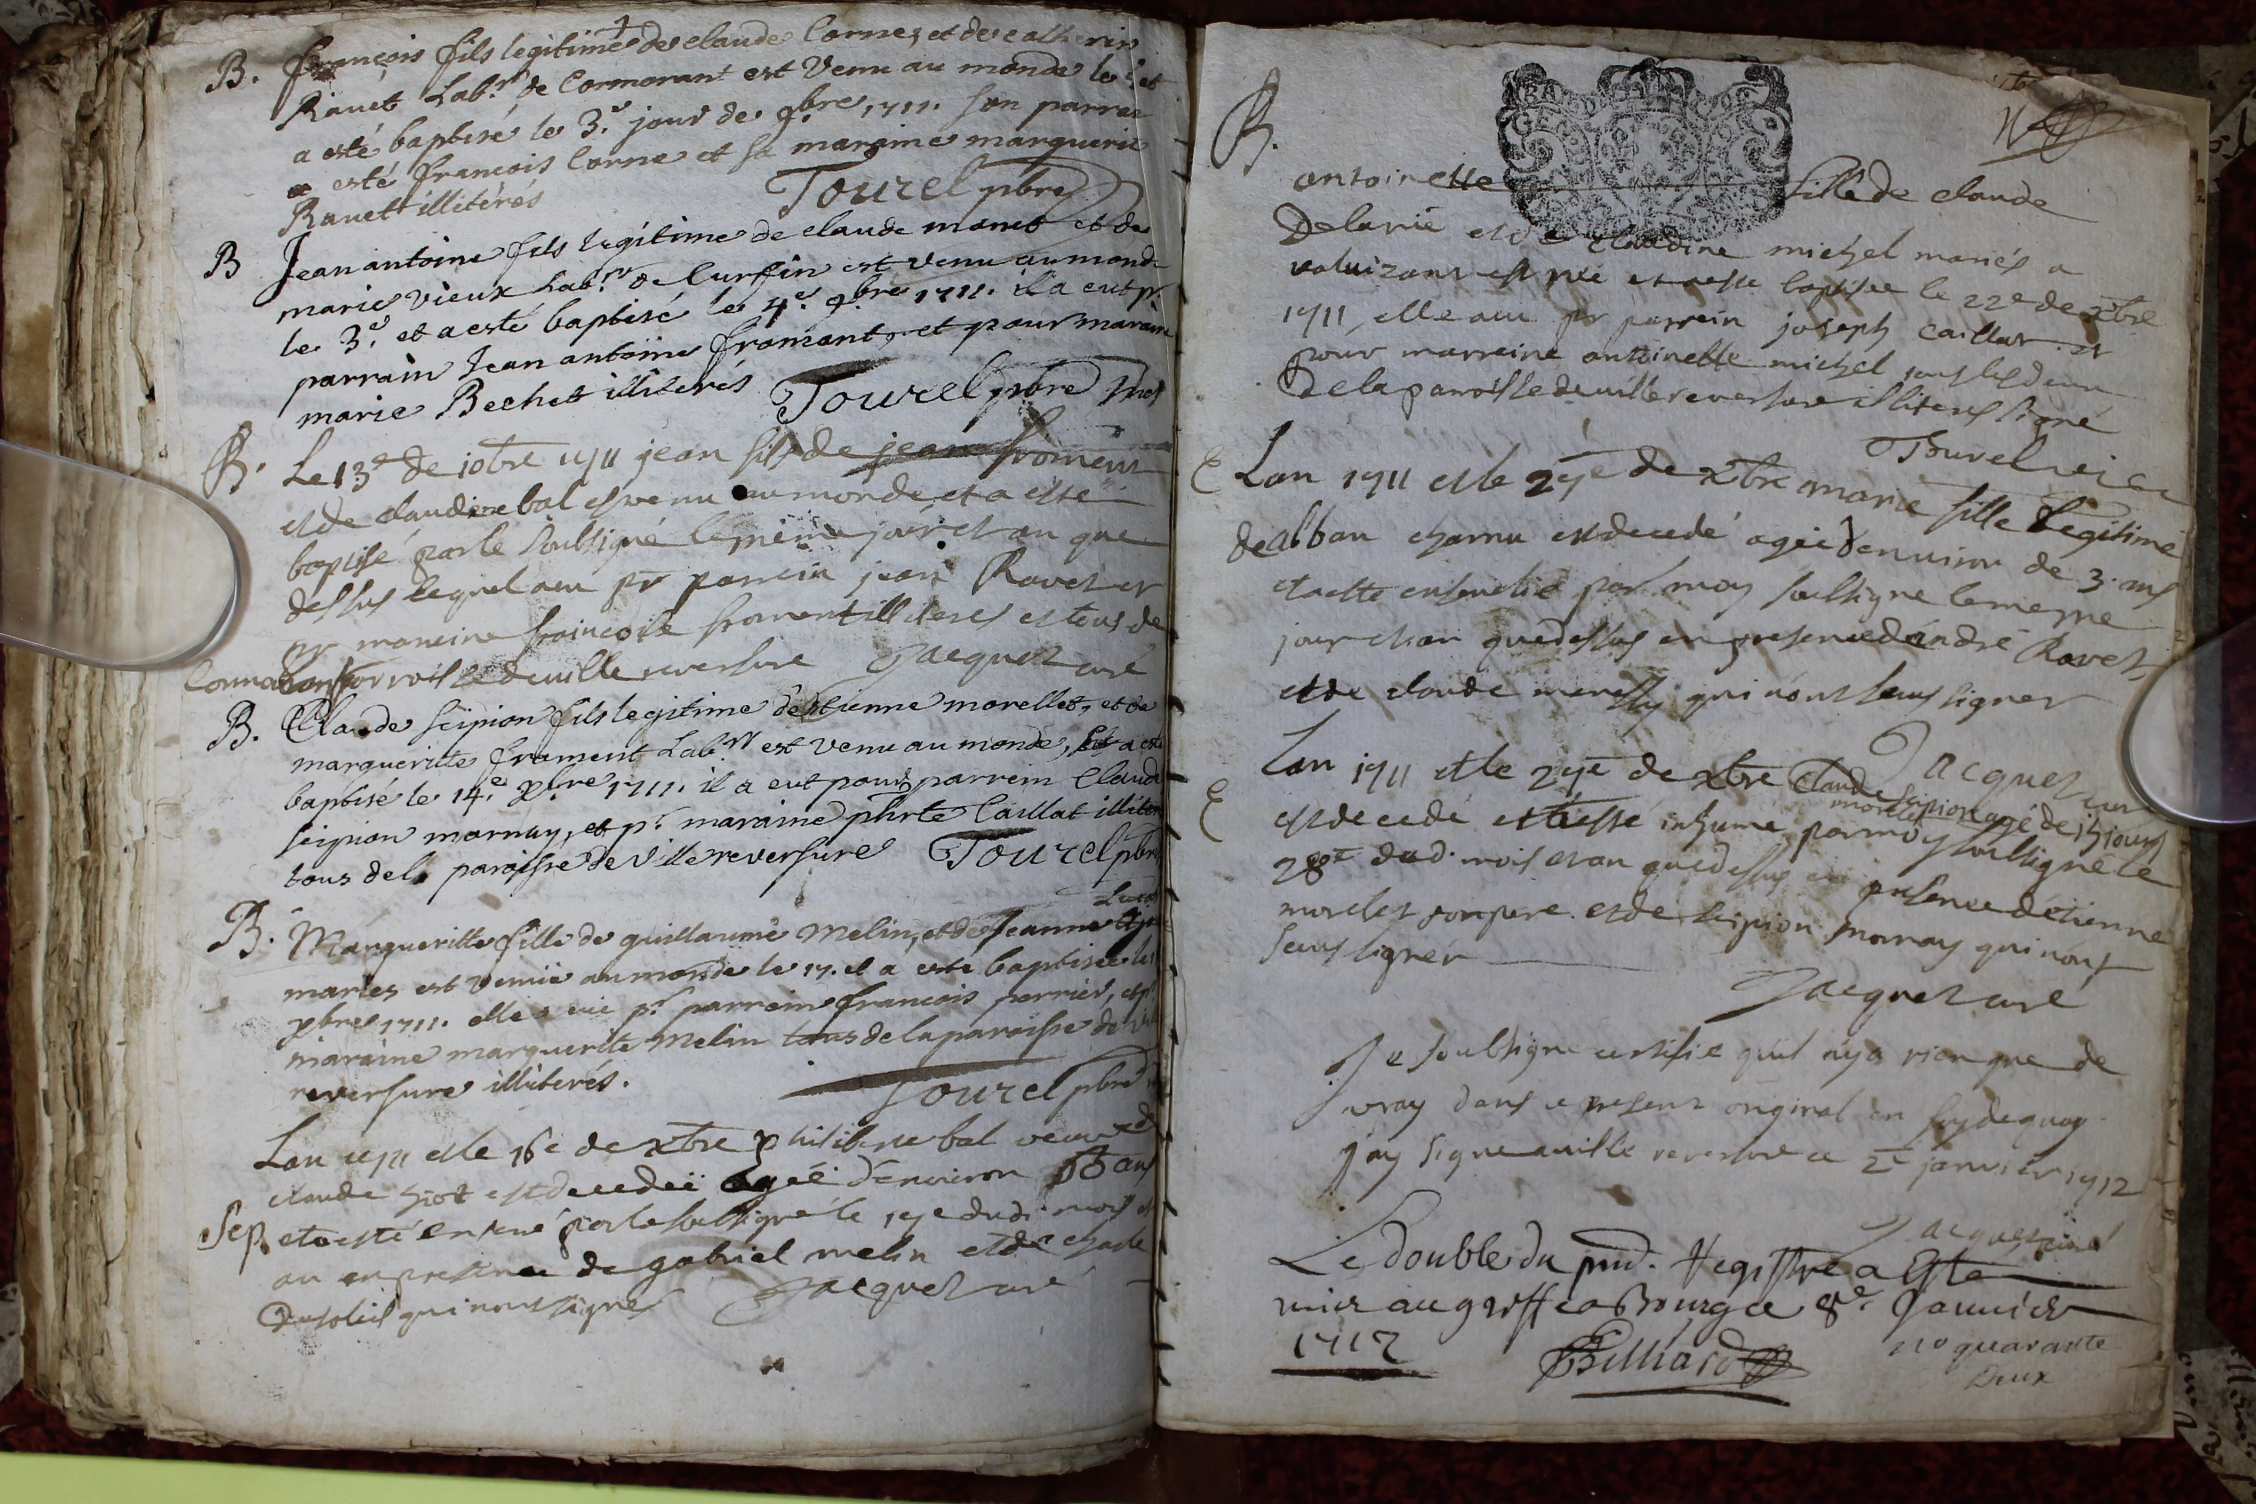 B. françois fils legitime de claude Corne, et de catherin
Ravet Lab.r de Cormorant est Venu au monde le et
a esté baptisé le 3.e jour de 9.bre 1711. son parrai
a esté francois Corne et sa maraine marguerite
Ravet illitérés Tourel pbre
B Jean antoine fils legitime de claude manet et de
marie vieux Lab.r de Curfin est venu au monde
le 3.e et a esté baptisé le 4.e 9.bre 1711. il a eut p.r
parrain Jean antoine fromant, et pour maraine
marie Bechet illiterés Tourel pbre
B. Le 13e de 10bre 1711 jean fils de jean froment
et de claudine bal est venu au monde et a esté
baptisé par le soubsigné le meme jour et an que
dessus lequel a eu pr parrein jean Ravet et
pr mareine françoise froment illiteres et tous de
Cormoran parroisse de ville reversure Jacquet curé
B. Claude scipion fils legitime d'estienne morellet, et de
margueritte froment Lab.r est venu au monde, a esté
baptisé le 14.e x.bre 1711. il a eut pour parrein Claude
scipion mornay, et p.r maraine phrte Caillat illiter
tous de la paroisse de Villereversure Tourel pbre
B. Margueritte fille de guillaume Melin, et de Jeanne
mariés est venuë au monde le 17. et a esté baptisée le
xbre 1711. elle a eu p.r parrein francois perrier, et p.r
maraine marguerite Melin tous de la paroisse de
reversure illiterés.
Tourel pbre
Lan 1711 et le 16e de xbre philiberte bal veuve de
claude est decedeé ageé d'environ ans
Sep. et a esté enterré par le soubsigné le 17e dudi. mois et
an en presence de gabriel melin et de
qui nont signer Jacquet curé
B.
antoinette fille de claude
Delarüe et de Claudine michel mariés a
est née et a esté baptisée le 22e de xbre
1711, elle a eu pr parrein joseph caillat et
pour marreine antoinette michel tous les deux
de la parroisse de ville reversure illiteres signé
Tourel vic
E Lan 1711 et le 27e de xbre marie fille Legitime
de alban charnu est decedé ageé denviron de 3. ans
et a esté ensevelie par moy soubsigné le mesme
jour et an que dessus en presence d'andré Ravet,
et de claude qui nont sceu signer
Jacquet curé
E Lan 1711 et le 27e de xbre Claude scipion
morellet agé de 15 jours
est decedé et a esté inhumé par moy soubsigné le
28e dud. mois et an que dessus en presence d'étienne
morellet son pere et de scipion mornay qui nont
sceu signer
Jacquet curé
Je soubsigné certifie quil n'y a rien que de
vray dans le present original en foy de quoy
j'ay signé a ville reversure ce 2e janvier 1712
Jacquet curé
Le double du pnd. Registre a Esté
mis au greffe a Bourg ce 8e. Janvier
1712 Billiard
no quarante
Deux